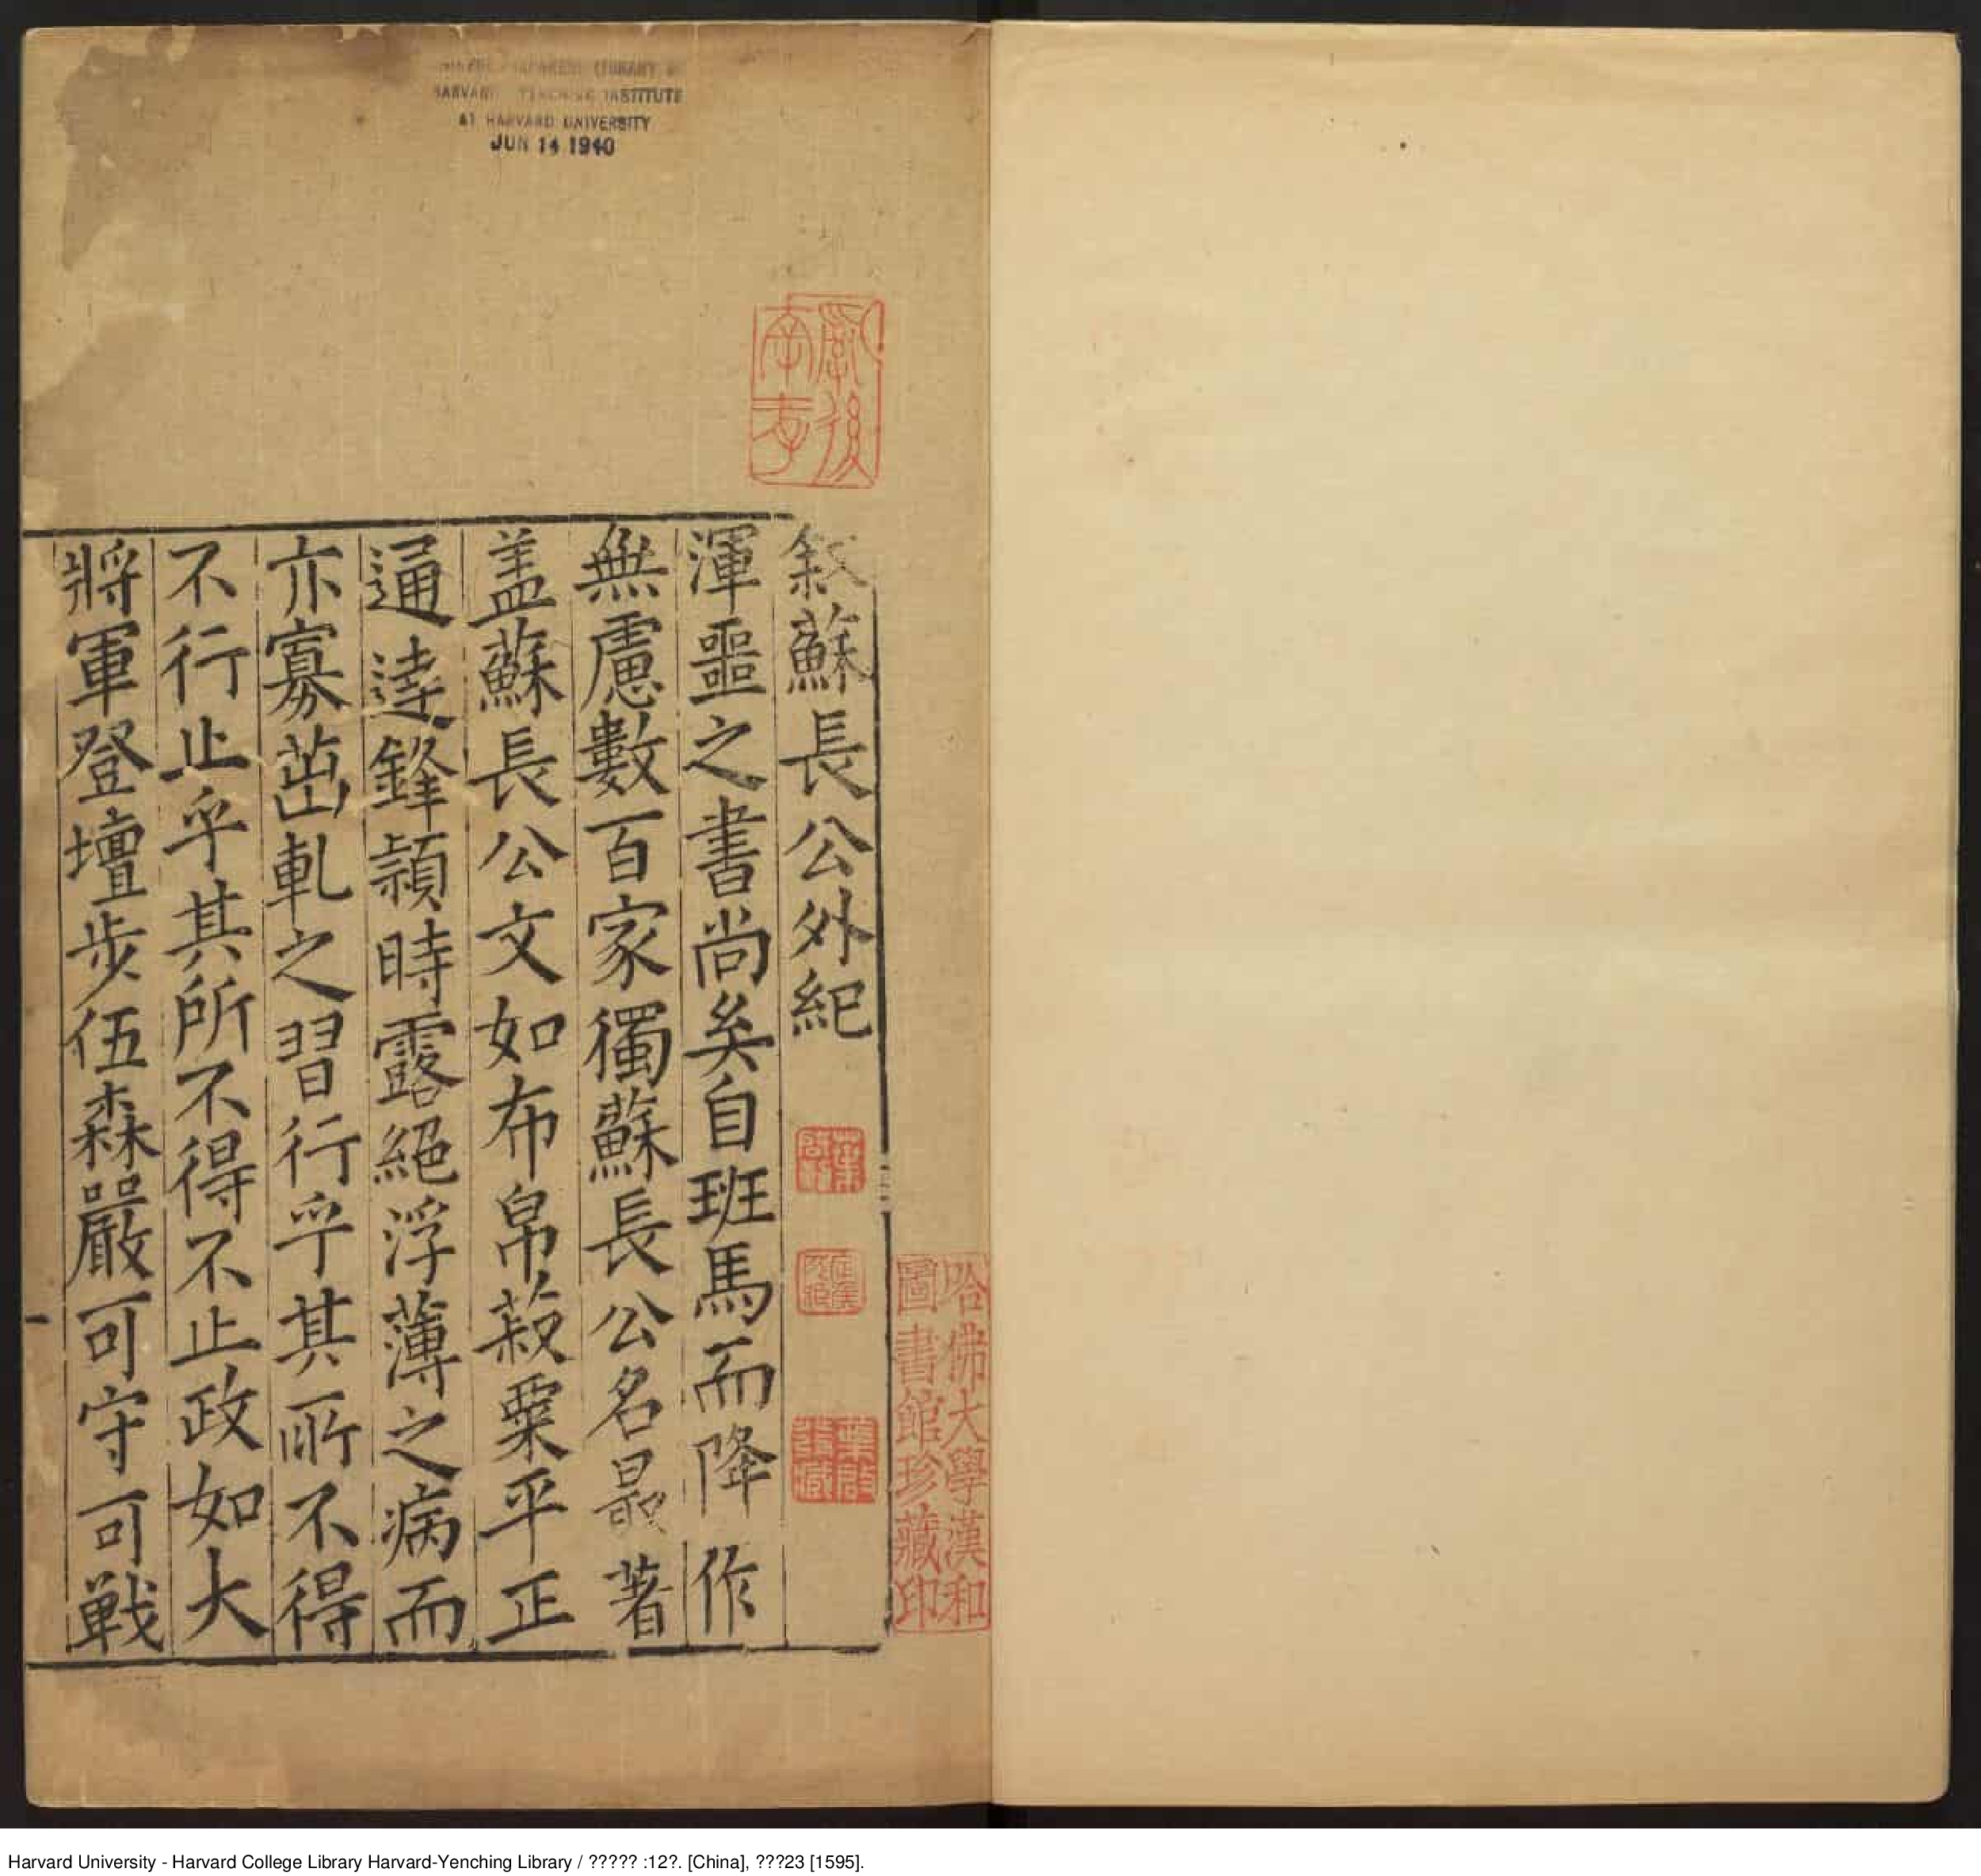 HARVARD UNIVERSITY
JUN 14 1940
敘蘇長公外紀
渾噩之書尚矣自班馬而降作
無慮數百家獨蘇長公名最著
盖蘇長公文如布帛菽粟平正
通達鋒穎時露絕浮薄之病而
亦寡茁軋之習行乎其所不得
不行止乎其所不得不止政如大
將軍登壇步伍森嚴可守可戰
哈佛大學漢和
圖書館珍藏印
Harvard University - Harvard College Library Harvard-Yenching Library / ????? :12?. [China], ???23 [1595].